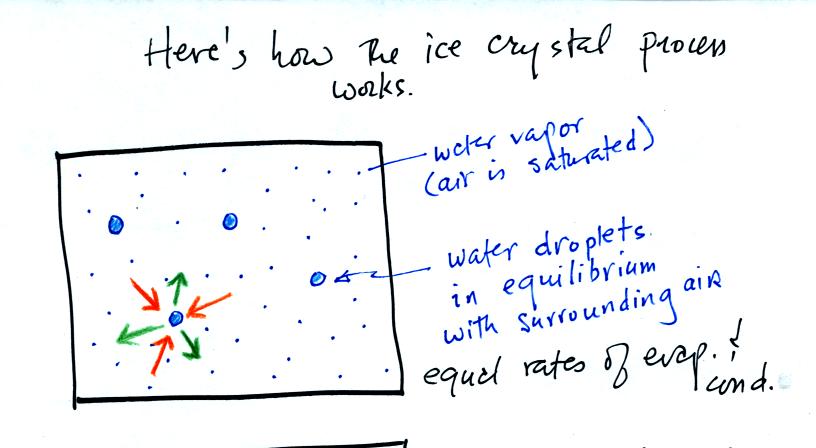 Here's how the ice crystal process
works.
water vapor
(air is saturated)
water droplets.
in equilibrium
with surrounding air
equal rates of evap. &
cond.